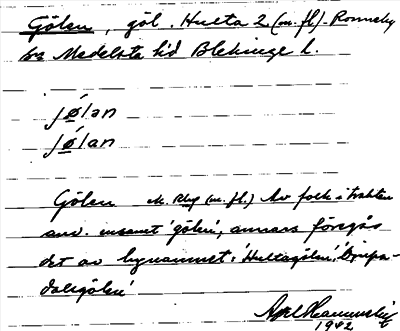 Gölen, göl. Hulta 2 (m. fl.) Ronneby
sn Medelsta hd Blekinge l.
jǿlən
jǿlan
Gölen M. Rbg (m. fl.) Av folk i trakten
anv. enamet 'gölen', annars föregås
det av bynamnet: 'Hultagölen', 'Djupa-
dalsgölen'
Axel
1942